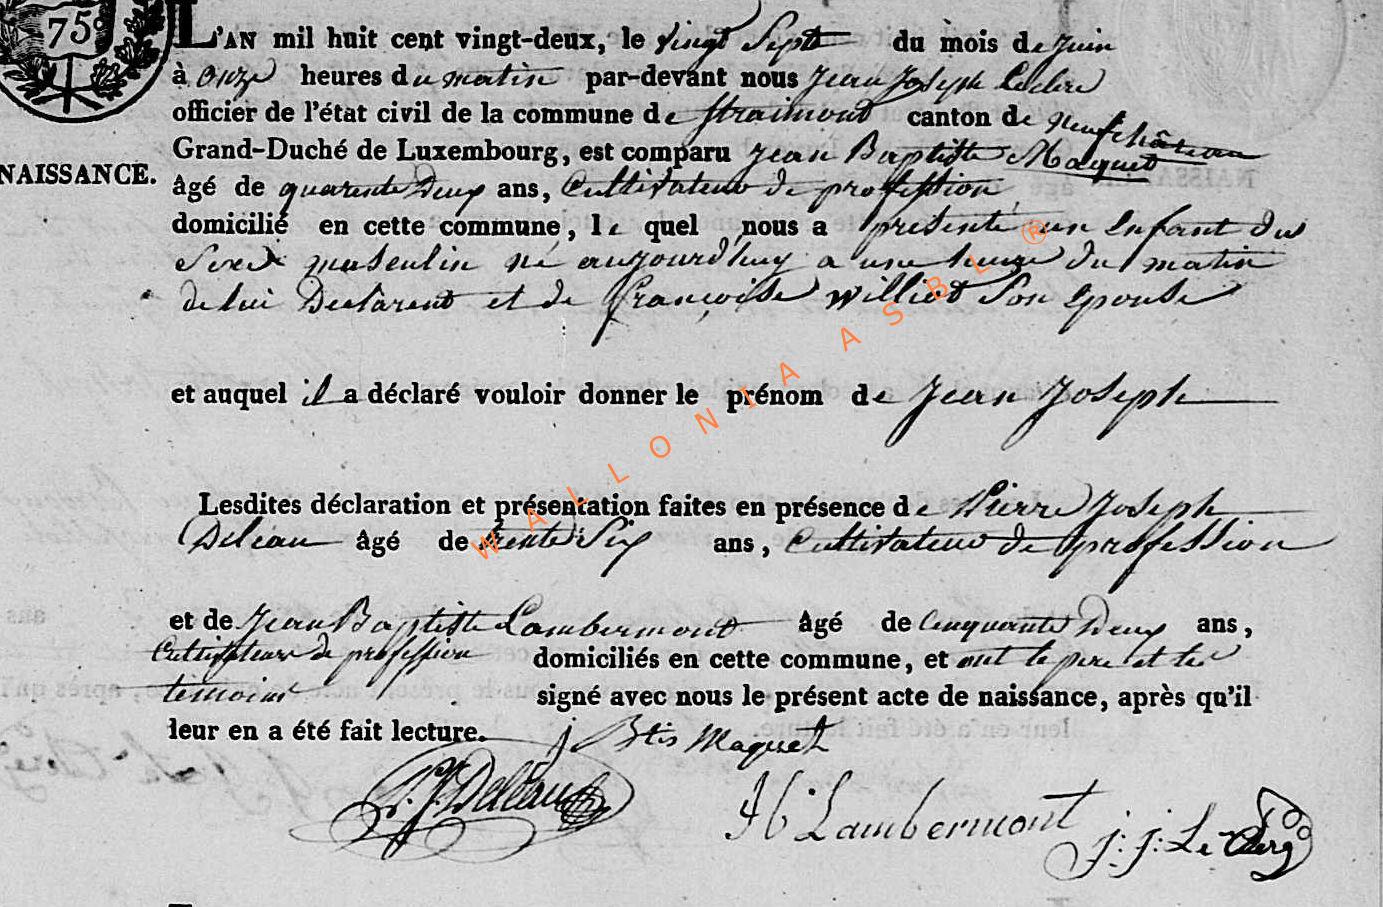 75
L'AN mil huit cent vingt-deux, le vingt Sept du mois de Juin
à onze heures du matin par-devant nous Jean Joseph Leclere
officier de l'état civil de la commune de Straimont canton de neufchâteau
Grand-Duché de Luxembourg, est comparu Jean Baptiste Maquet
NAISSANCE.
âgé de quarente Deux ans, Cultivateur de profession
domicilié en cette commune, le quel nous a présenté un Enfant du
Sexe masculin né aujourd'huy a une heure du matin
de lui Declarent et de françoise williot Son Epouse
et auquel il a déclaré vouloir donner le prénom de Jean Joseph
Lesdites déclaration et présentation faites en présence de Pierre Joseph
Deleau âgé de trente Six ans, Cultivateur de profession
et de Jean Baptiste Lambermont âgé de Cinquante Deux ans,
Cultivateur de profession domiciliés en cette commune, et ont le pere et les
temoins signé avec nous le présent acte de naissance, après qu'il
leur en a été fait lecture. j Btis maquet
P. J. Deleau
H Lambermont
j. j. Le Clerq
WALLONIA ASBL ®